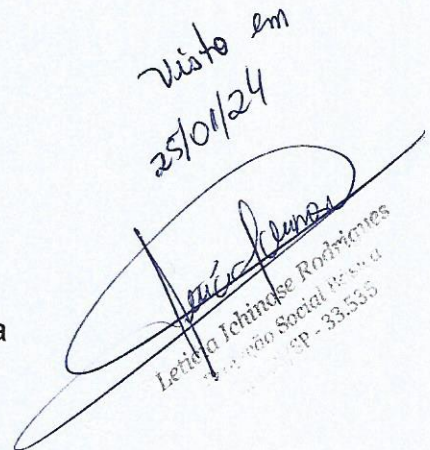 Visto em
25/01/24
a
Leticia Ichinose Rodrigues
Social
SP - 33.535